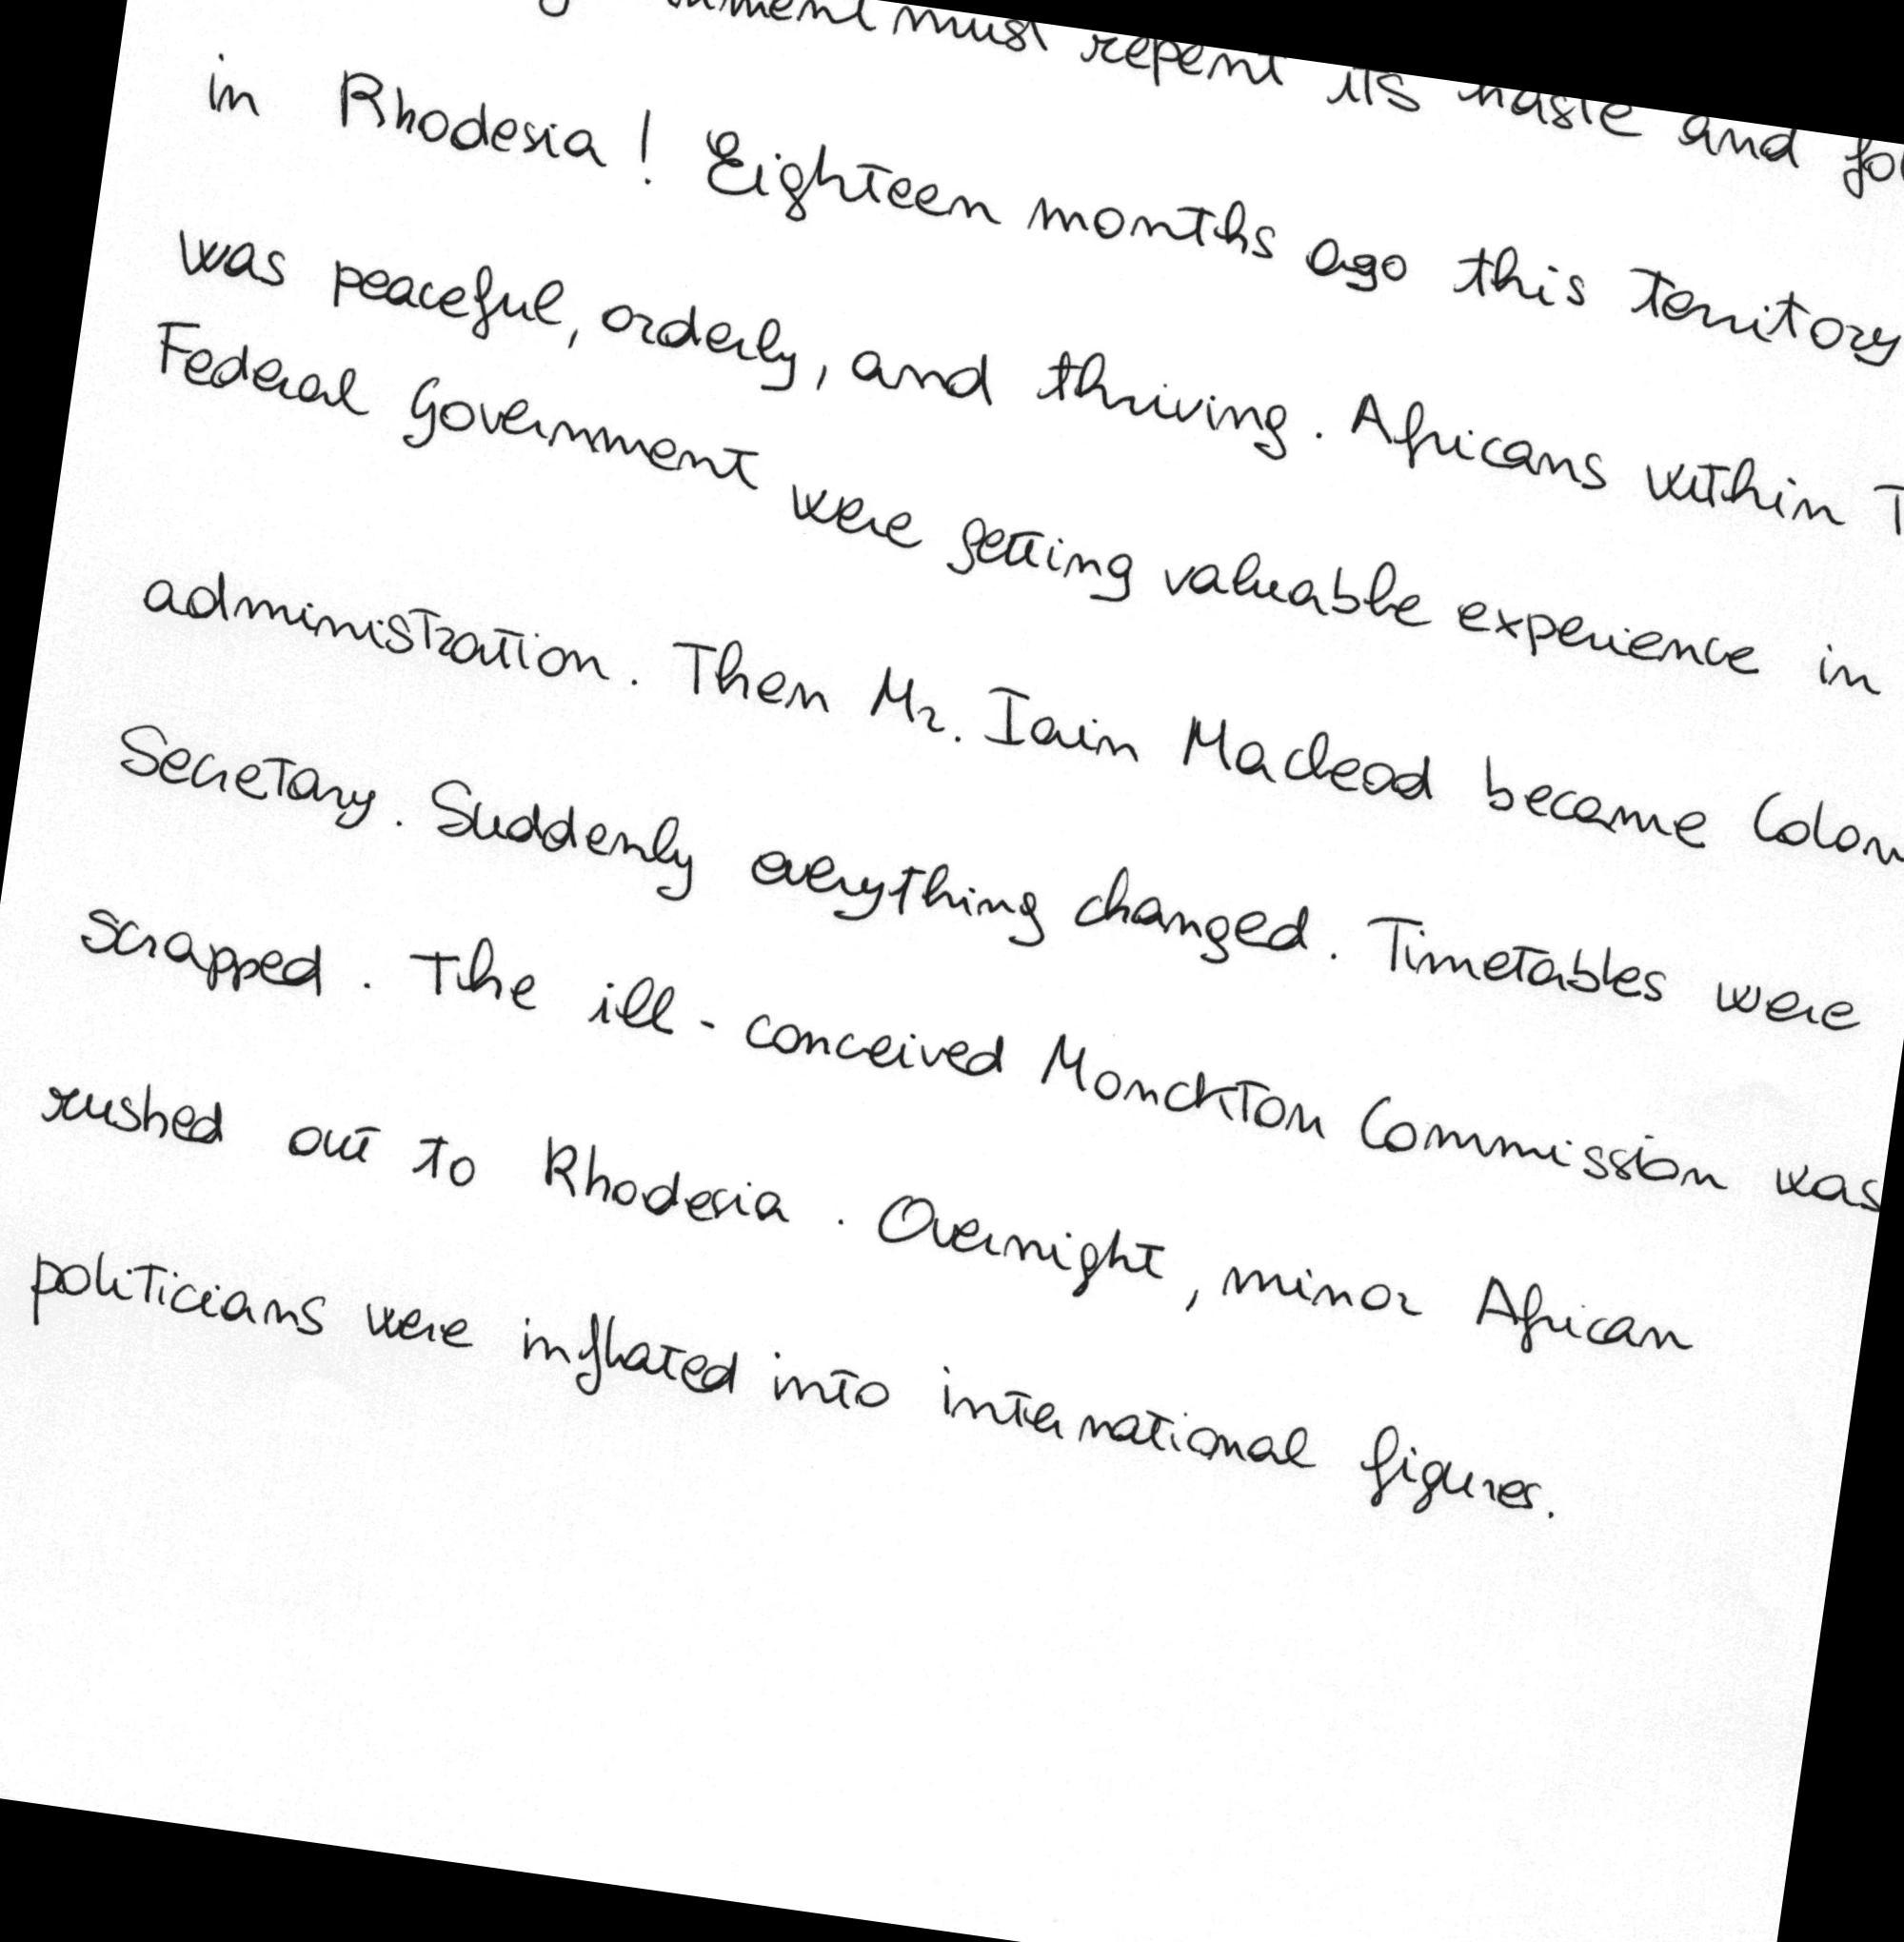 must repent its haste and
in Rhodesia! Eighteen months ago this territory
was peaceful, orderly, and thriving. Africans within
Federal Government were getting valuable experience in
administration. Then Mr. Iain Macleod became
Secretary. Suddenly everything changed. Timetables were
scrapped. The ill-conceived Monckton Commission was
rushed out to Rhodesia. Overnight, minor African
politicians were inflated into international figures.